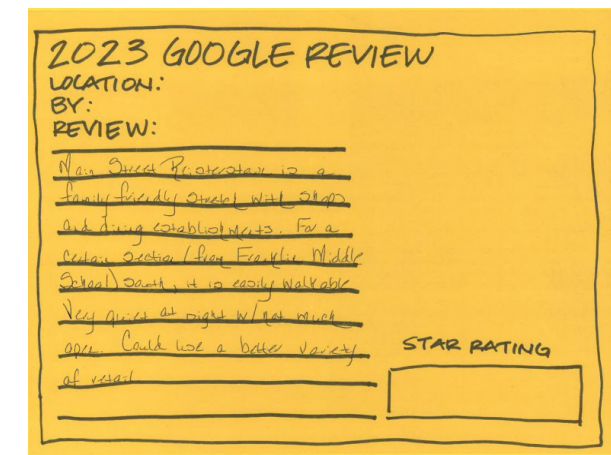 2023 GOOGLE REVIEW
LOCATION:
BY:
REVIEW:
Main Street Reisterstown is a
family friendly stretch with shops
and dining establishments. For a
certain section (from Franklin Middle
School) South, it is easily walkable
Very quiet at night w/ not much
open. Could use a better variety
of retail
STAR RATING